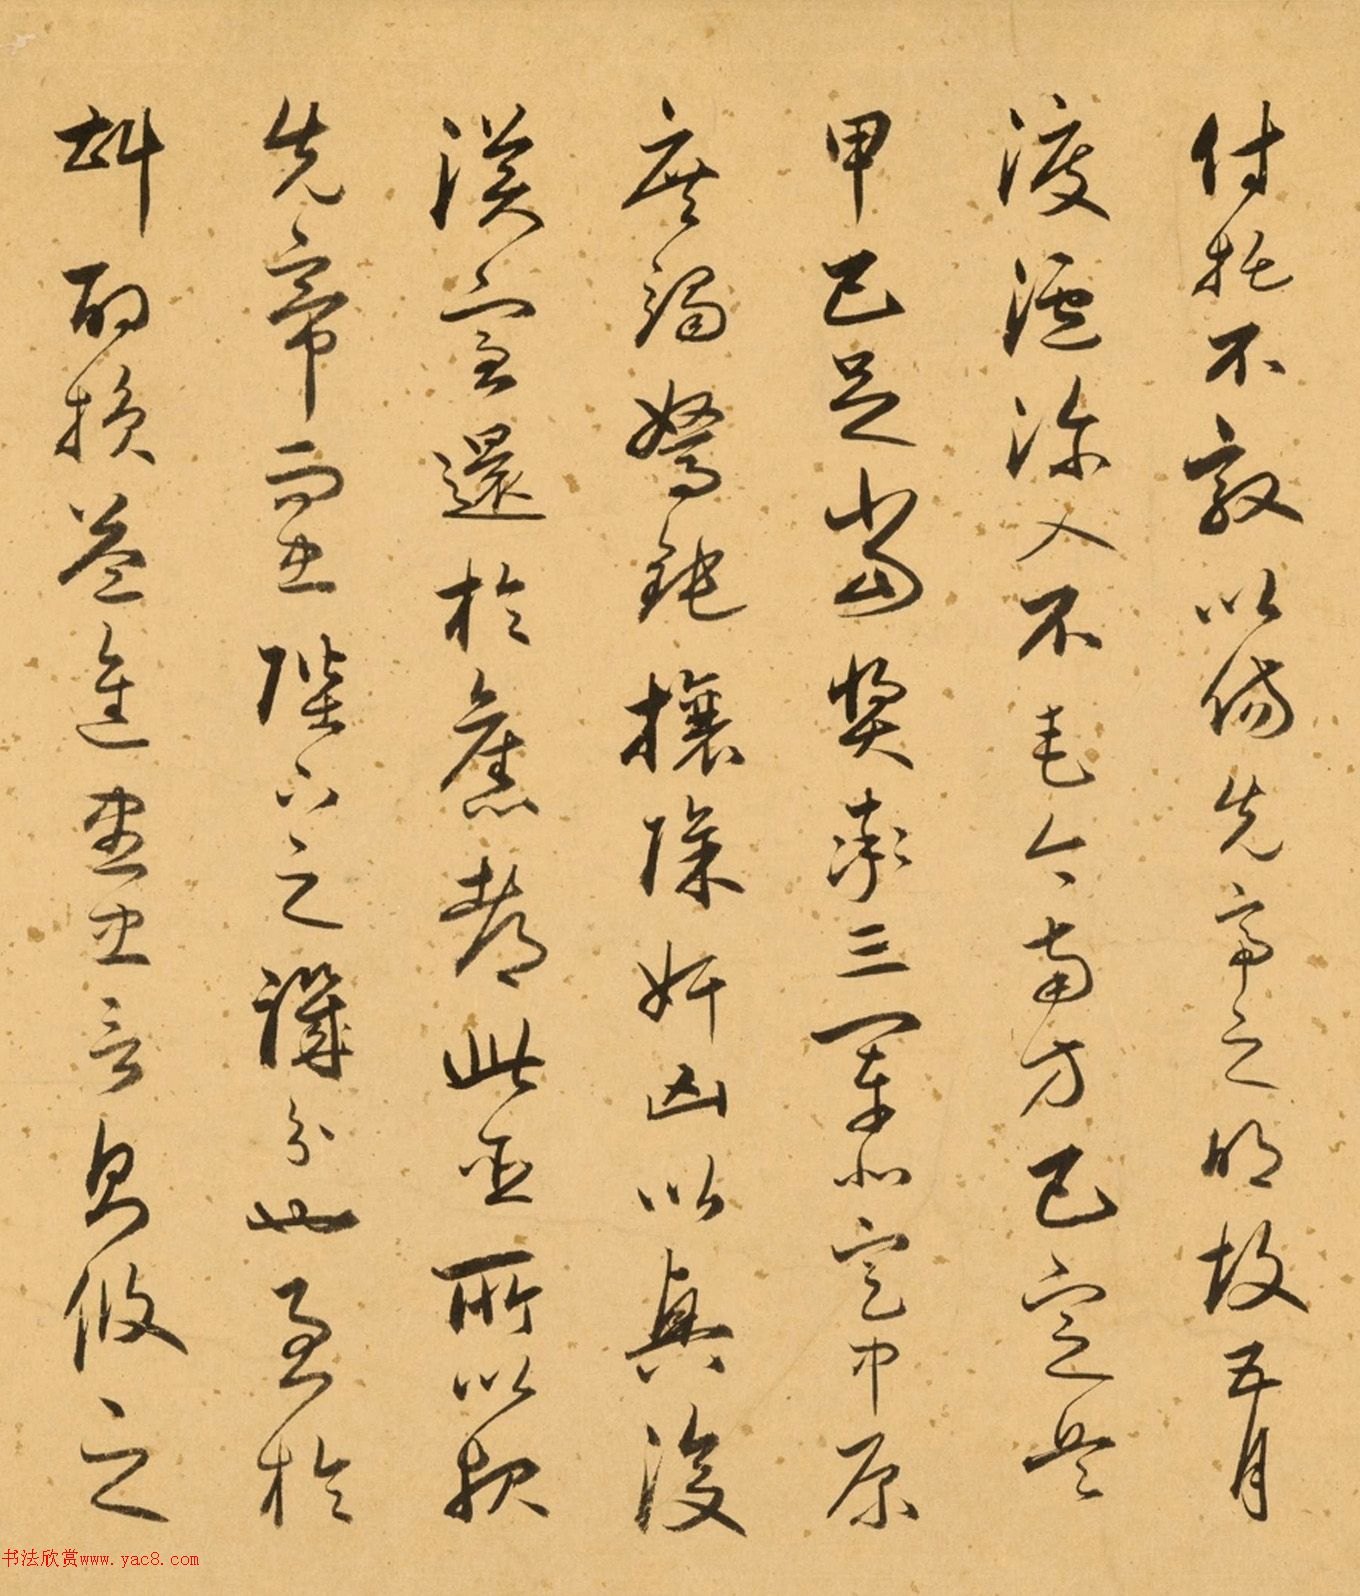 付托不效以傷先帝之明故五月
渡瀘深入不毛今南方已定兵
甲已足當獎率三軍北定中原
庶竭駑鈍攘除奸凶以興復
漢室還於舊都此臣所以報
先帝而忠陛下之職分也至於
斟酌損益進盡忠言則攸之
书法欣赏www.yac8.com